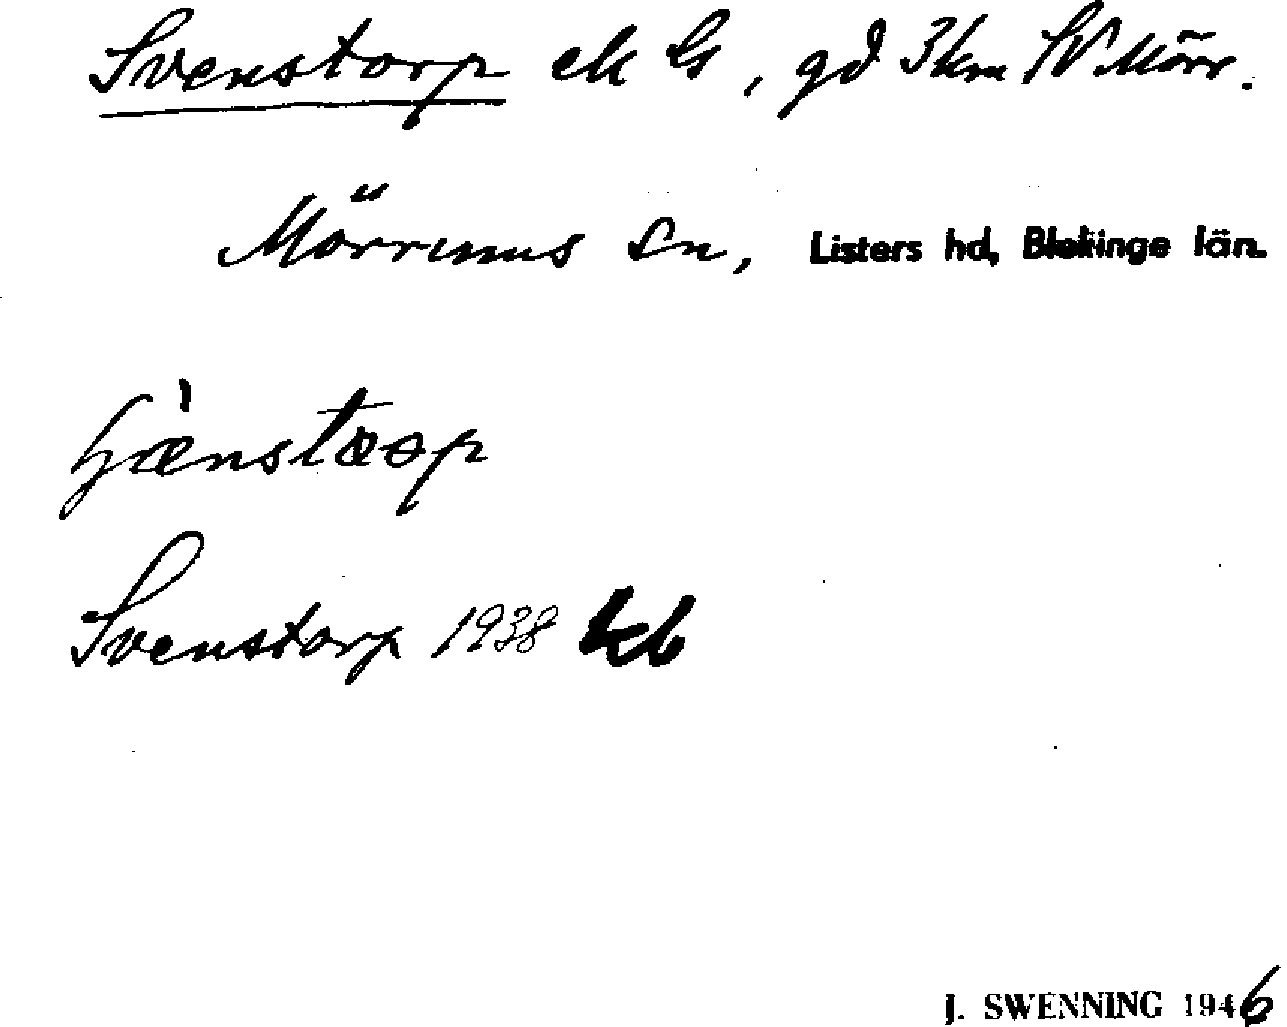 Svenstorp ek G, gd 3 km SV Mörr.
Mörrums sn, Listers hd, Blekinge län.
Svenstorp 1938 kb
J. SWENNING 1946